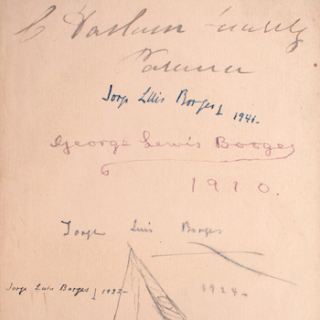 Jorge Luis Borges 1941-
George Lewis Borges
1910.
Jorge Luis Borges
1924-
Jorge Luis Borges